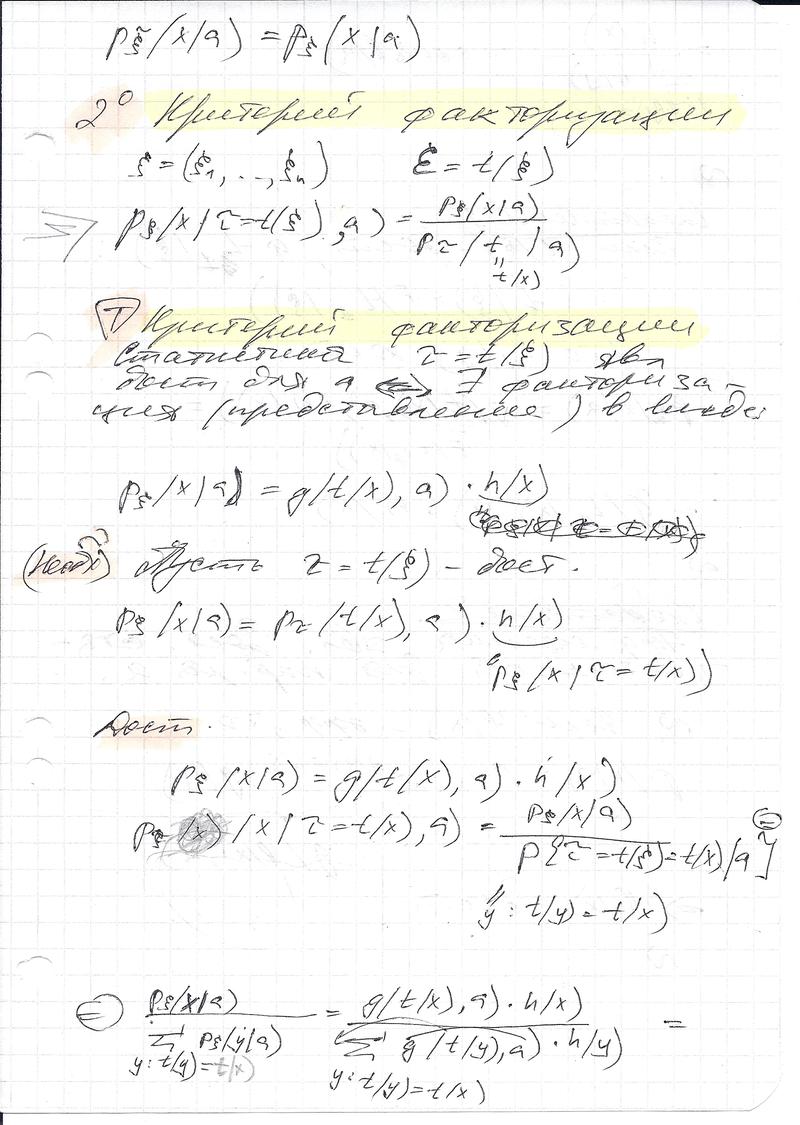 p_ξ̃(x|a) = p_ξ(x|a)
2° Критерий факторизации
ξ = (ξ₁, ..., ξₙ) τ = t(ξ)
p_ξ(x | τ = t(ξ), a) = p_ξ(x|a) / p_τ(t | a)
" t(x)
Т Критерий факторизации
Статистика τ = t(ξ) явл
дост для a ⇔ ∃ факториза-
ция (представление) в виде:
p_ξ(x|a) = g(t(x), a) · h(x)
(Необх) Пусть τ = t(ξ) – дост.
p_ξ(x|a) = p_τ(t(x), a) · h(x)
" p_ξ(x | τ = t(x))
Дост.
p_ξ(x|a) = g(t(x), a) · h(x)
p_ξ (x | τ = t(x), a) = p_ξ(x|a) / P{τ = t(ξ) = t(x) | a} =
" y : t(y) = t(x)
= p_ξ(x|a) / Σ p_ξ(y|a) = g(t(x), a) · h(x) / Σ g(t(y), a) · h(y) =
y: t(y) = t(x) y: t(y) = t(x)